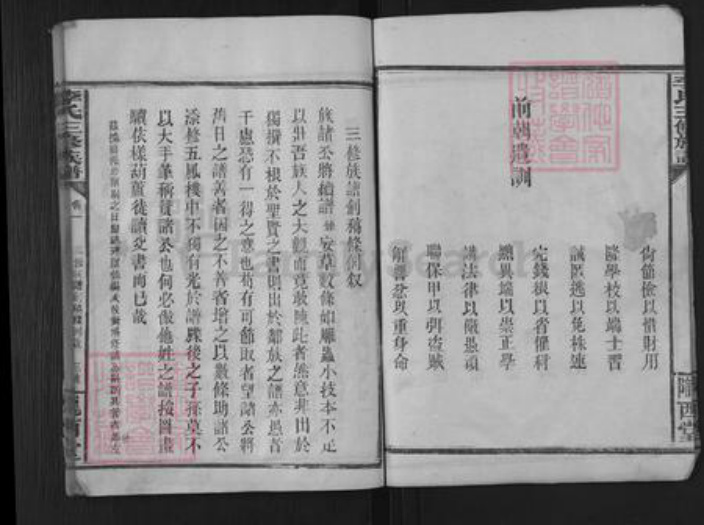 前朝遺訓
尚節儉以惜財用
隆學校以端士習
誡匿逃以免株連
完錢粮以省催科
黜異端以崇正學
講法律以儆愚頑
聯保甲以弭盜賊
解讐忿以重身命
隴西堂
李氏三修族譜
三修族譜創稿條例叙
族諸公將續譜 安草數條如雕蟲小技本不足
以壯吾族人之大觀而竟敢陳此者無意非出於
獨撰不根於聖賢之書則出於鄰族之譜亦愚者
千慮恐有一得之意也苟有可節取者望諸公將
舊日之譜善者因之不善者增之以數條助諸公
添修五鳳樓中不獨有光於譜牒後之子孫莫不
以大手筆稱賛諸公也何必倣他姓之譜按圖畫
續依樣葫蘆徒讀父書而已哉
李氏三修族譜
卷一